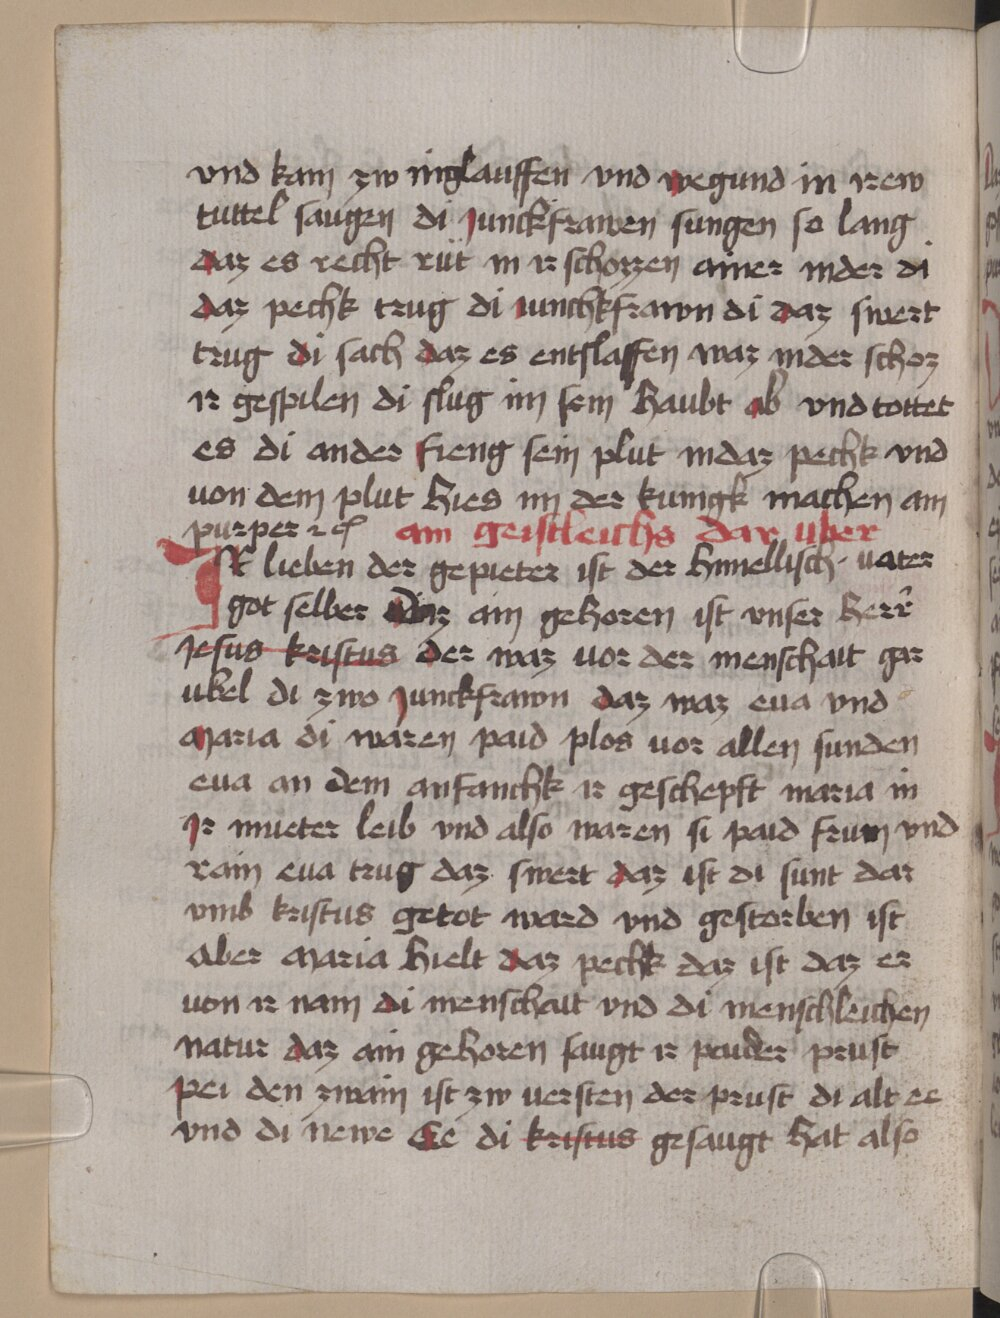 vnd kam zw inglauffen vnd wegund in irew
tuttel saugen di junckfrawen sungen so lang
daz es recht rüt in ir schozzen ainer inder di
daz pechk trug di iunchkfrawn di daz swert
trug di sach daz es entslaffen waz inder schoz
ir gespilen di slug im sein haubt ab vnd tottet
es di ander fieng sein plut indaz pechk vnd
uon dem plut hies im der kunigk machen ain
purper ꝛc ain geistleichs dar vber
Ir lieben der gepieter ist der himellisch vater
got selber Daz ain gehoren ist vnser herr
Jesus kristus der waz uor der menschait gar
ubel di zwo junckfrawn daz waz eua vnd
Maria di waren paid plos uor allen sunden
eua an dem anfanchk ir geschepft maria in
Ir mueter leib vnd also waren si paid frum vnd
rain eua trug daz swert daz ist di sunt dar
vmb kristus getot ward vnd gestorben ist
Aber Maria hielt daz pechk daz ist daz er
uon ir nam di menschait vnd di menschleichen
natur daz ain gehoren saugt ir peuder prust
pei den zwain ist zw uersten der prust di alt ee
vnd di newe Ee di kristus gesaugt hat also